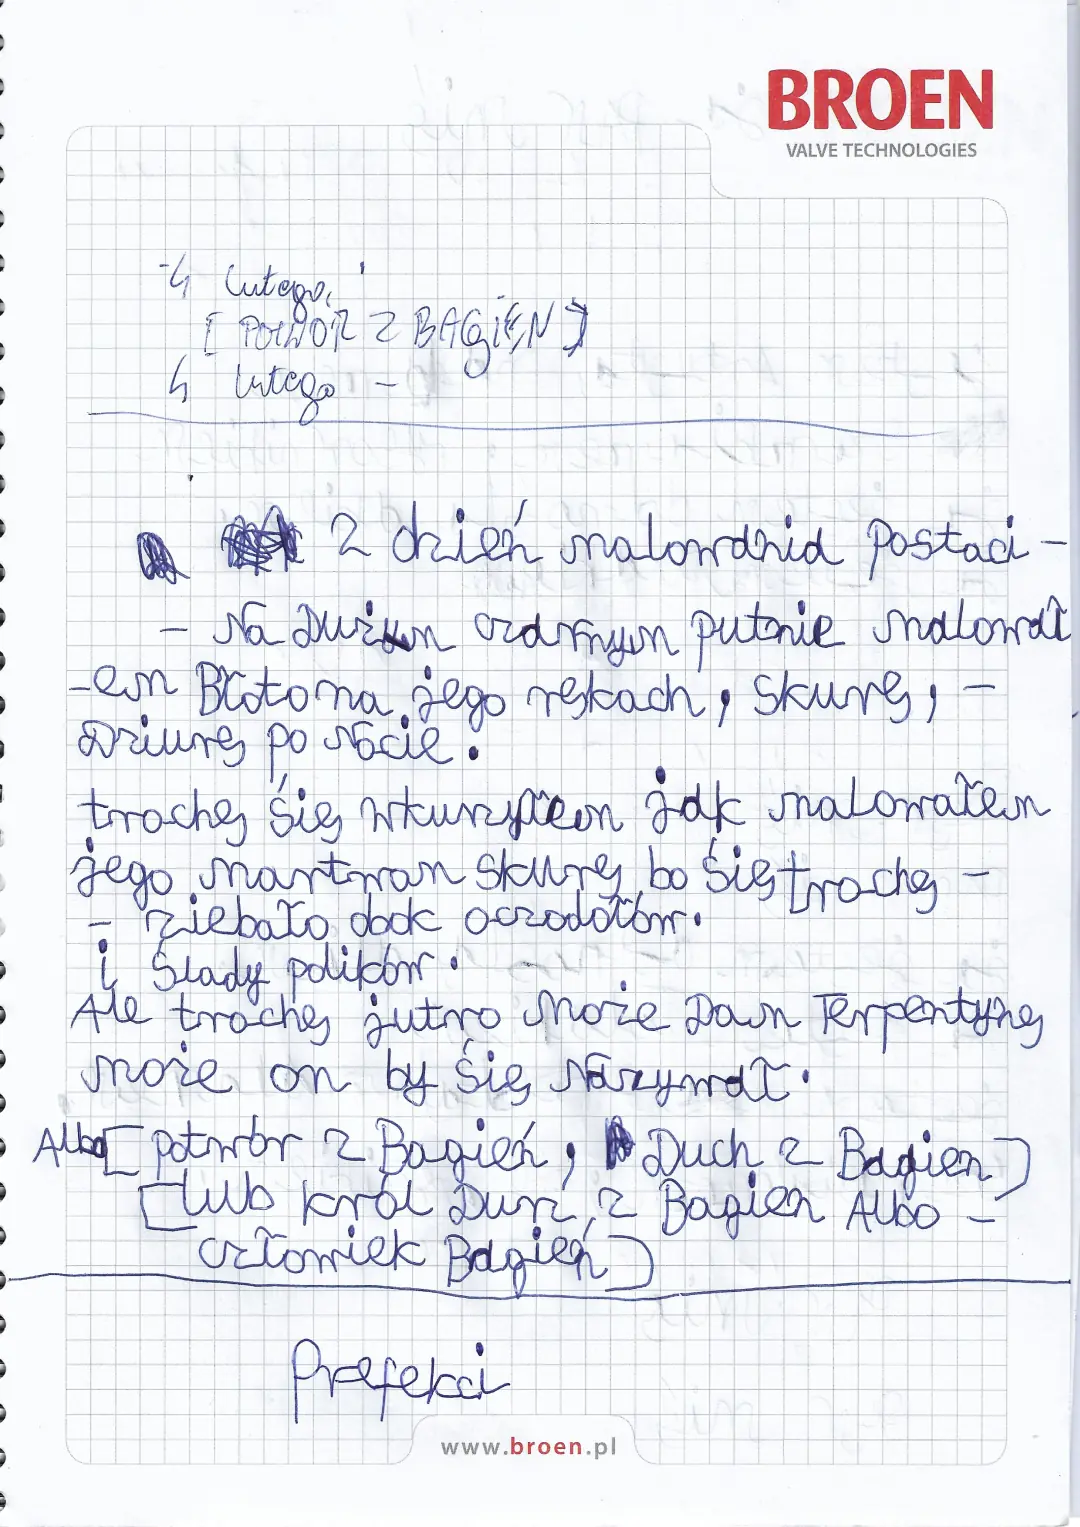 BROEN
VALVE TECHNOLOGIES
-4 lutego,
[POTWÓR Z BAGIEN]
4 lutego -
2 dzień malowania Postaci -
- Na Dużym czarnym putnie malował
-em Błoto na jego rękach, Skurę, -
Dziurę po Nocie.
trochę Się wkurzyłem jak malowałem
jego martwan Skurę bo Się trochę -
- ziebało obok oczodołów.
i Ślady polików.
Ale trochę jutro Może Dam Terpentynę
może on by Się Nazywał.
Albo [potwór z Bagień, Duch z Bagien]
[lub król Dun z Bagien Albo -
człowiek Bagień]
Prefekci
www.broen.pl